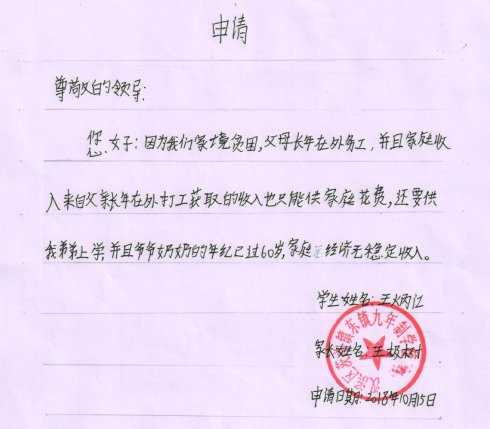 申请
尊敬的领导:
您好:因为我们家境贫困,父母长年在外务工,并且家庭收
入来自父亲长年在外打工获取的收入也只能供家庭花费,还要供
我弟弟上学,并且爷爷奶奶的年纪已过60岁,家庭经济无稳定收入。
学生姓名:王炳江
家长姓名:王
申请日期:2018年10月15日
东镇九年制学校